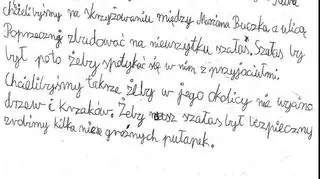 chcielibyśmy na skrzyżowaniu między Mariana Buczka a ulicą
Poprzeczną zbudować na nieużytku szałas. Szałas by
był poto żeby spotykać się w nim z przyjaciółmi.
Chcielibyśmy także żeby w jego okolicy nie wycinano
drzew i krzaków. Żeby nasz szałas był bezpieczny
zrobimy kilka nie groźnych pułapek.